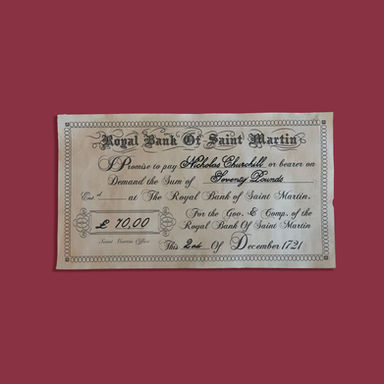 Royal Bank Of Saint Martin
I Promise to pay Nicholas Churchill or bearer on
Demand the Sum of Seventy Pounds
at The Royal Bank of Saint Martin.
For the Gov. & Comp. of the
£ 70,00 Royal Bank Of Saint Martin
Saint Martin Office
This 2nd Of December 1721